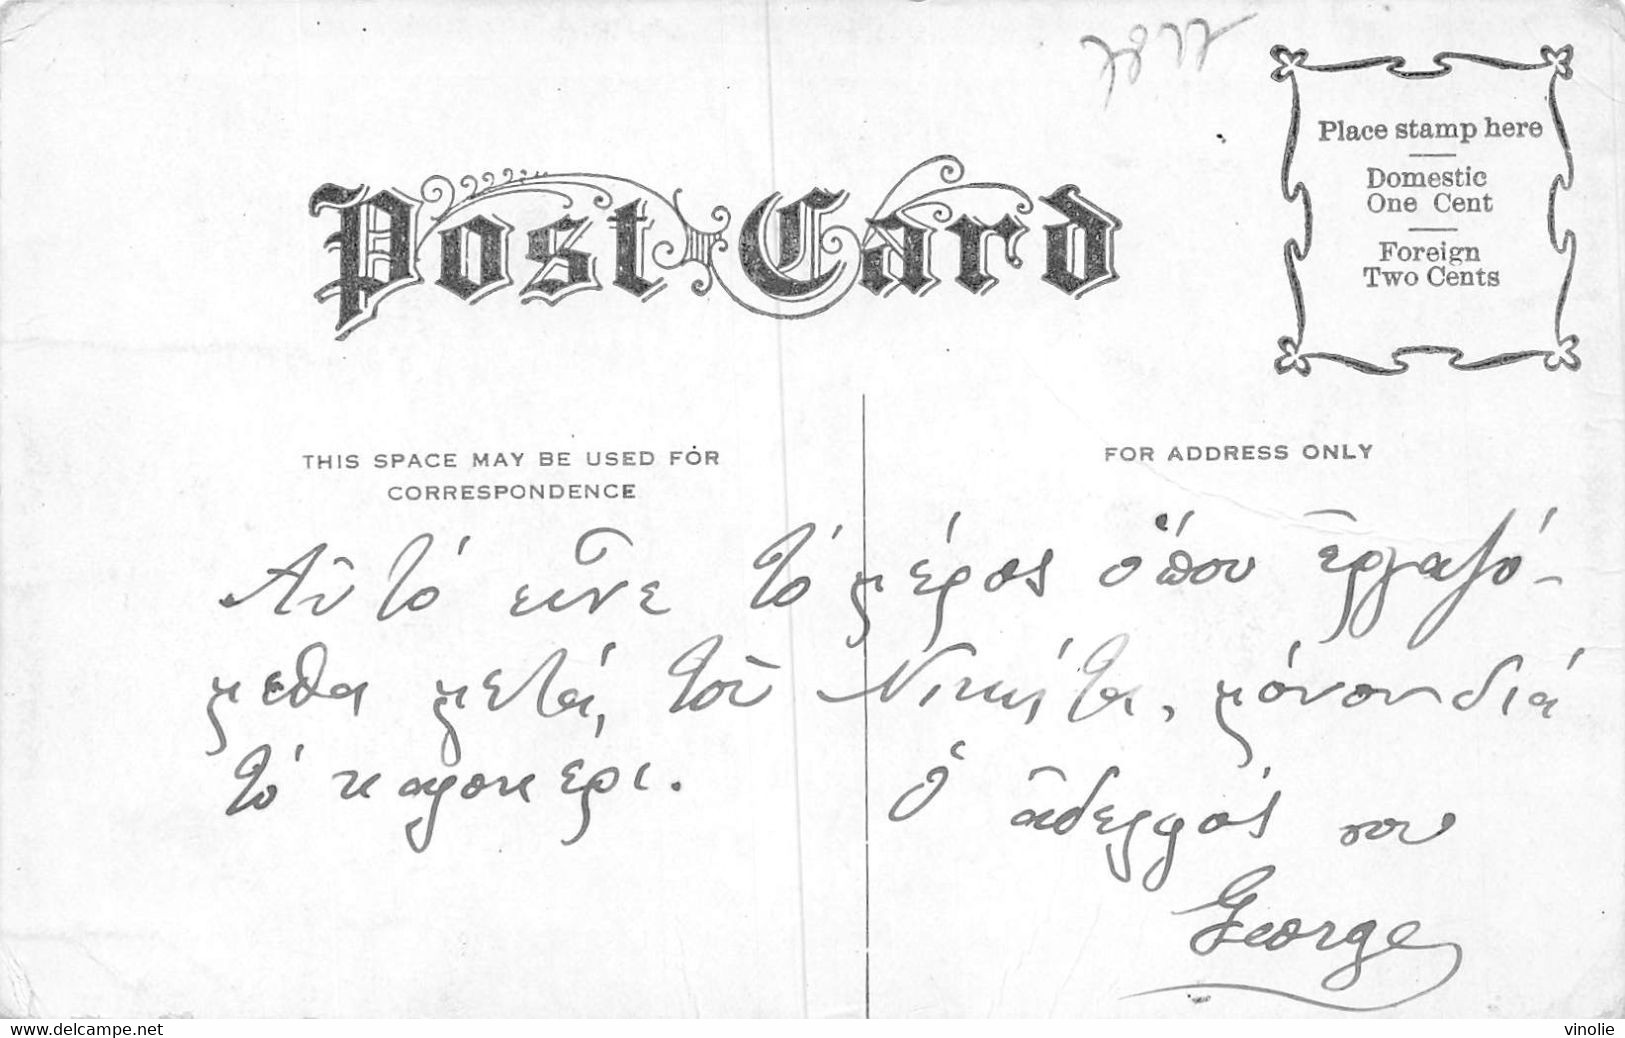 7877
Place stamp here
Domestic
One Cent
Foreign
Two Cents
Post Card
THIS SPACE MAY BE USED FOR
CORRESPONDENCE
FOR ADDRESS ONLY
Αὐτό εἶνε τό μέρος ὅπου ἐργαζό-
μεθα μετά τοῦ Νικήτα, μόνον διά
τό καλοκέρι.
Ὁ ἀδελφός σου
George
www.delcampe.net
vinolie